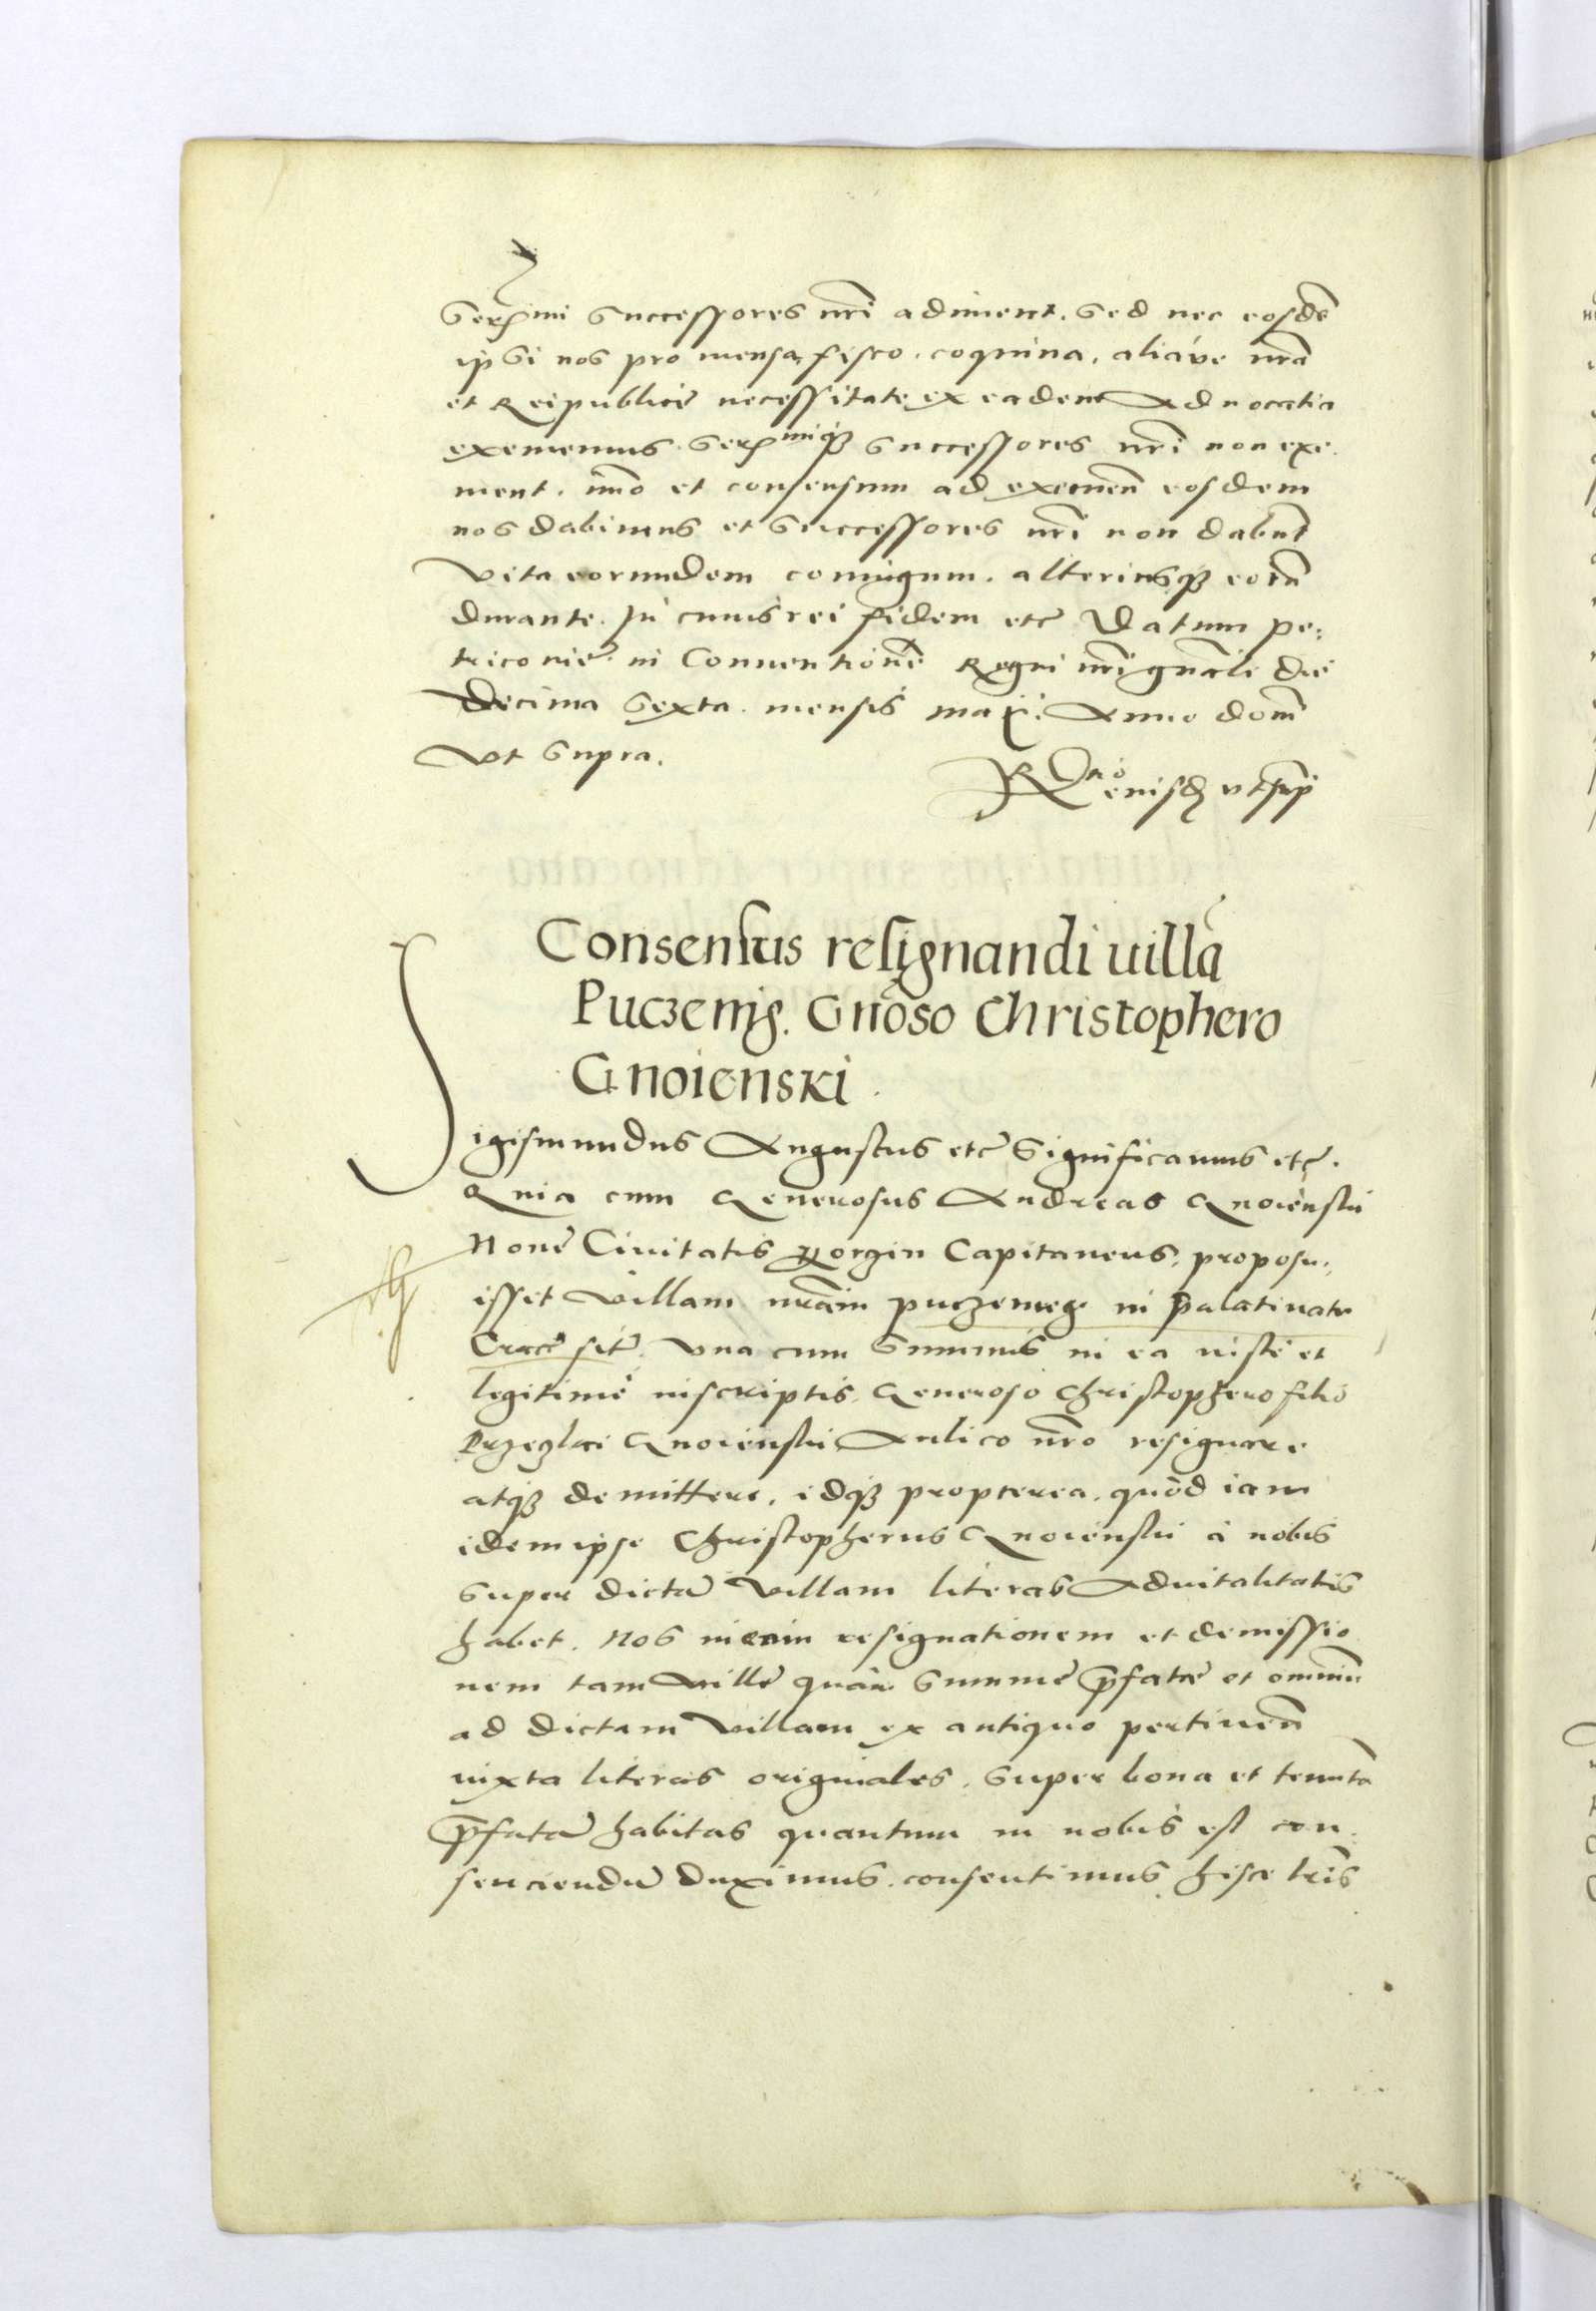 Sermi Successores nri adiment. Sed nec eosdē
ipsi nos pro mensa, fisco, coquina, aliáve nrā
et Reipublicę necessitate ex eadem Aduocatia
eximemus. Sermiqȝ Successores nri non exi-
ment. imo et consensum ad eximen eosdem
nos dabimus et Successores nri non dabunt
Vita eorundem coniugum. alteriusqȝ eorū
durante. In cuius rei fidem etc Datum Pe:
tricouię. in Conuentione Regni nri gnāli die
Decima Sexta. mensis maii. Anno dom̄
Vt Supra.
Consensus resignandi uillā
Puczenig. Gnōso Christophero
Gnoienski.
Sigismundus Augustus etc Significamus etc.
Quia cum Generosus Andreas Gnoienski
Nouę Ciuitatis Corzin Capitaneus, proposu-
isset Villam nrām puczenieg in palatinatu
Cracē sitā. Vna cum Summis in ea iustè et
legitimè inscriptis. Generoso Christophero filio
Przeczlai Gnoienski Aulico nro resignare
atqȝ demittere, idqȝ propterea, quòd iam
idem ipse Christopherus Gnoienski à nobis
super dictā Villam literas Aduitalitatis
habet. Nos in eam resignationem et demissio
nem tam Villę quàm Summę p̄fatę et omniū
ad dictam Villam ex antiquo pertinen̄
iuxta literas originales, super bona et tenutā
p̄fatā habitas quantum in nobis est con-
senciendū duximus. consentimus hisce lris